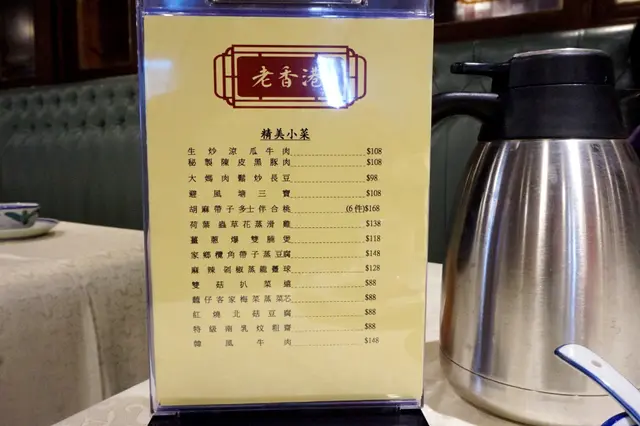 老香港
精美小菜
生炒涼瓜牛肉 $108
秘製陳皮黑豚肉 $108
大媽肉鬆炒長豆 $98
避風塘三寶 $108
胡麻帶子多士伴合桃 (6件)$168
荷葉蟲草花蒸滑雞 $138
薑蔥爆雙腩煲 $118
家鄉欖角帶子蒸豆腐 $148
麻辣剁椒蒸龍躉球 $128
雙菇扒菜遠 $88
麵仔客家梅菜蒸菜芯 $88
紅燒北菇豆腐 $88
特級南乳炆粗齋 $88
韓風牛肉 $148